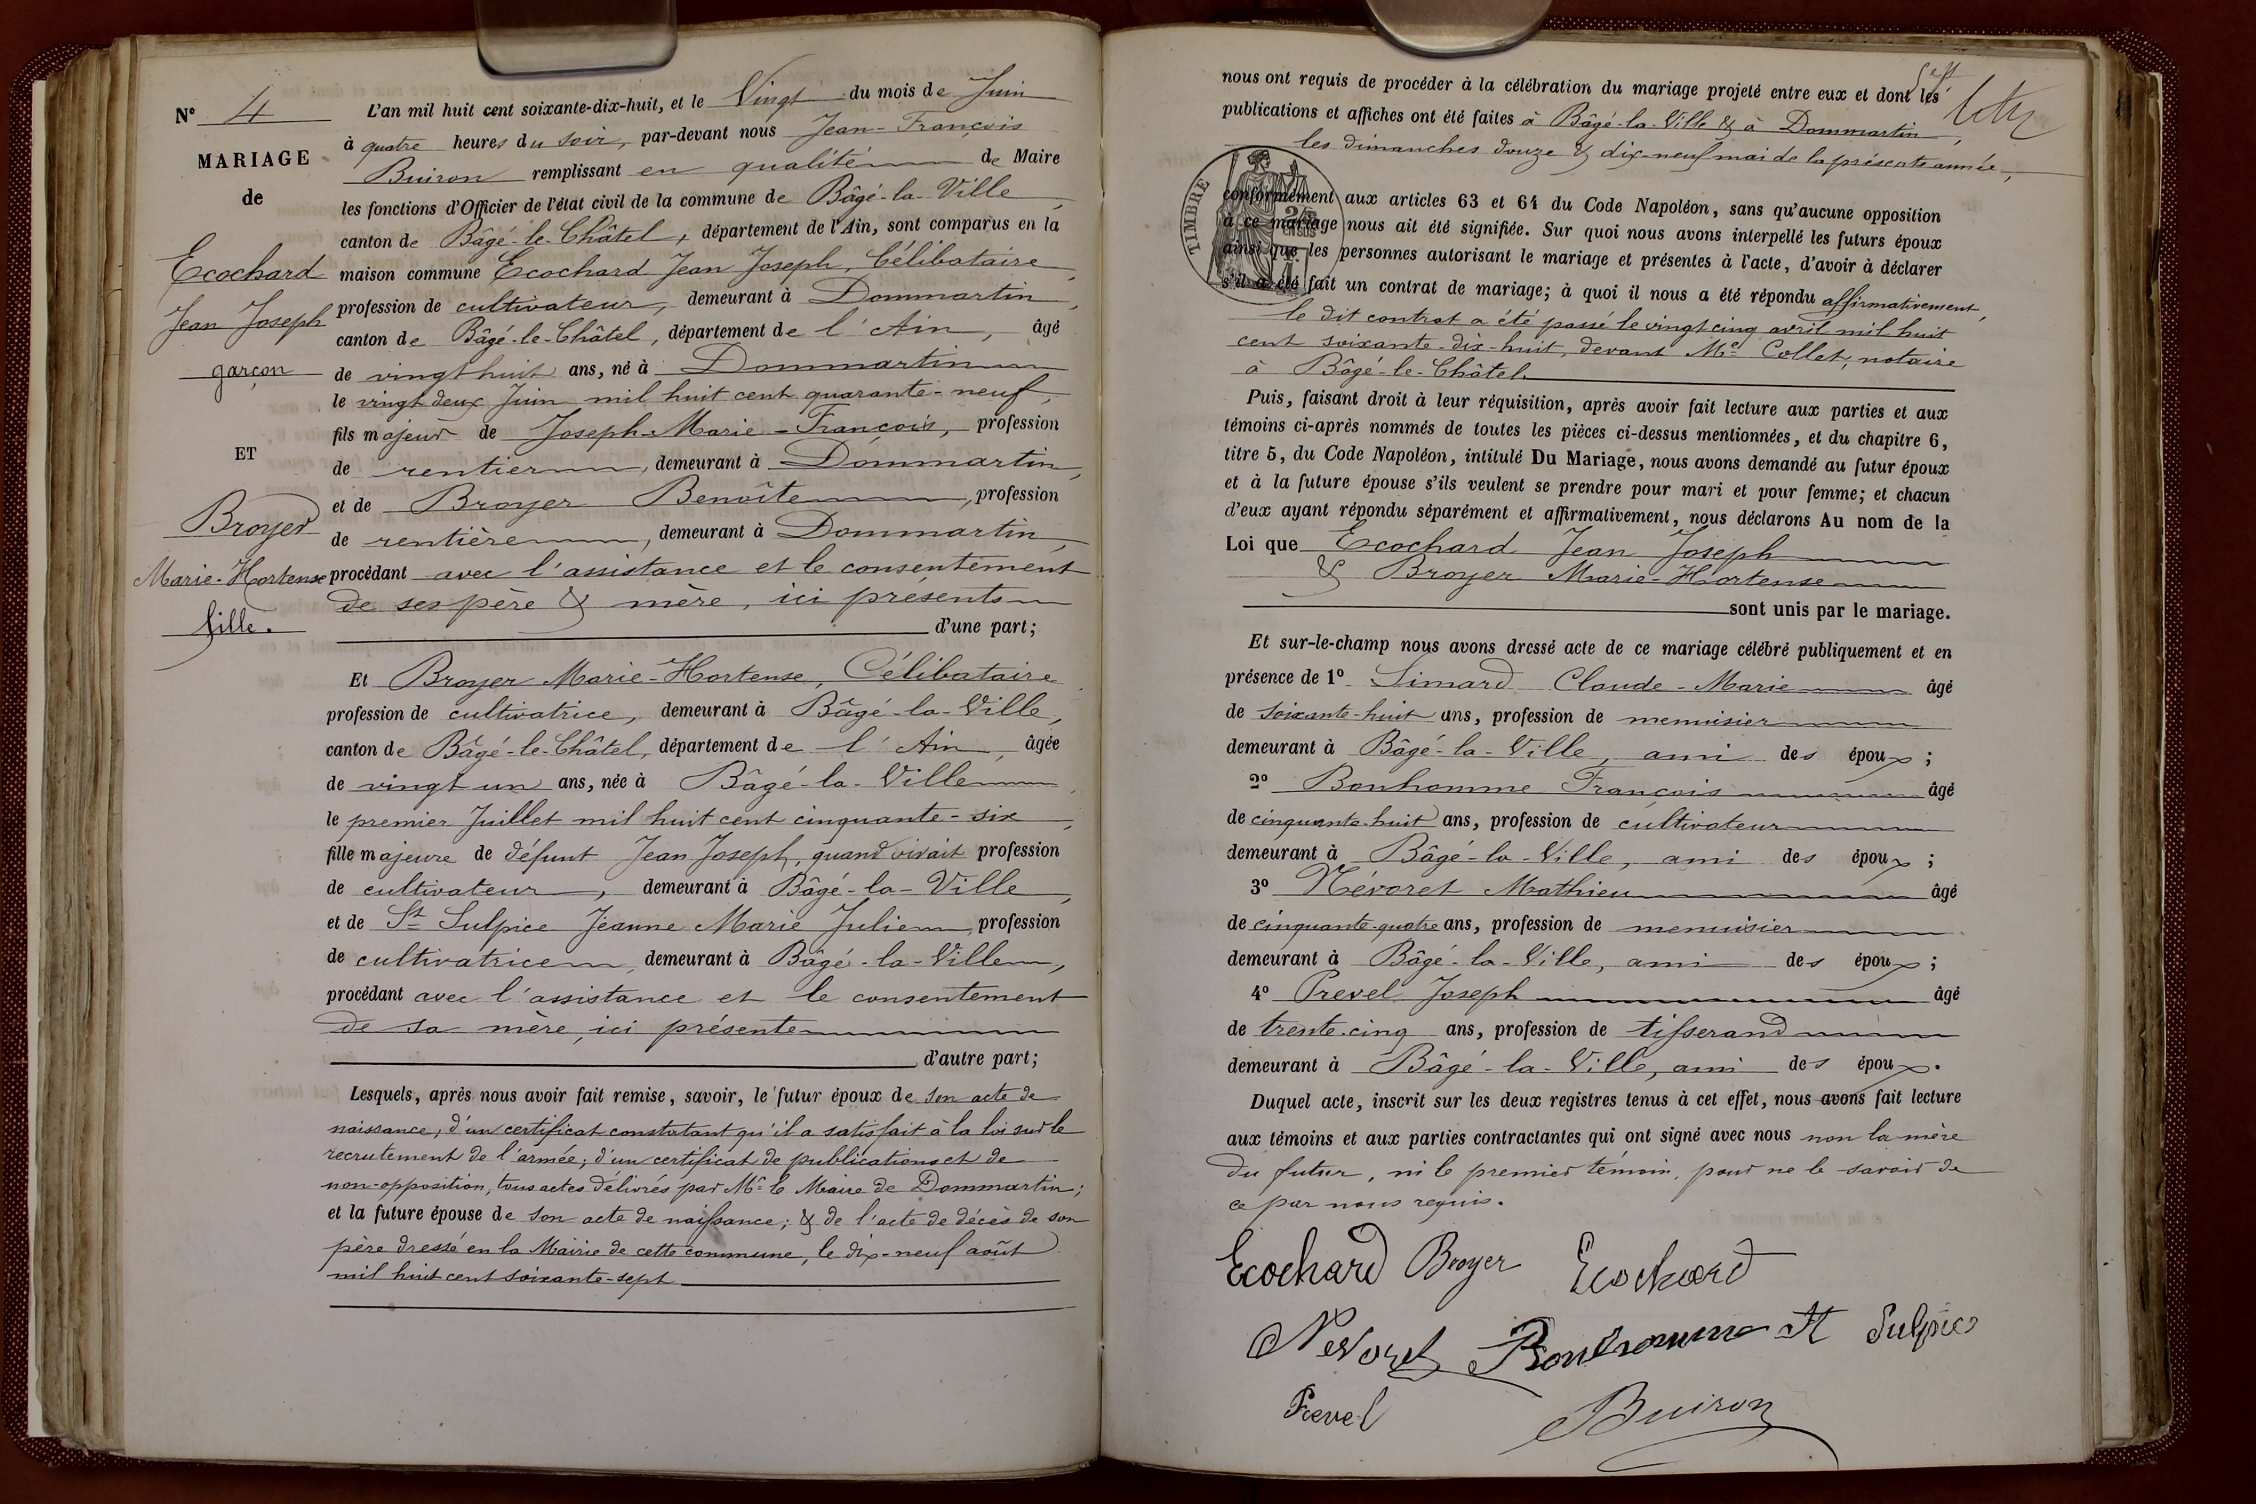 N° 4
MARIAGE
de
Ecochard
Jean Joseph
garçon
ET
Broyer
Marie-Hortense
fille.
L'an mil huit cent soixante-dix-huit, et le Vingt du mois de Juin
à quatre heures du soir, par-devant nous Jean-François
Buiron remplissant en qualité de Maire
les fonctions d'Officier de l'état civil de la commune de Bâgé-la-Ville,
canton de Bâgé-le-Châtel, département de l'Ain, sont comparus en la
maison commune Ecochard Jean Joseph, Célibataire,
profession de cultivateur, demeurant à Dommartin,
canton de Bâgé-le-Châtel, département de l'Ain, âgé
de vingt huit ans, né à Dommartin
le vingt deux Juin mil huit cent quarante-neuf,
fils majeur de Joseph-Marie-François, profession
de rentier, demeurant à Dommartin,
et de Broyer Benoîte, profession
de rentière, demeurant à Dommartin,
procédant avec l'assistance et le consentement
de ses père & mère, ici présents
d'une part;
Et Broyer Marie-Hortense, Célibataire
profession de cultivatrice, demeurant à Bâgé-la-Ville,
canton de Bâgé-le-Châtel, département de l'Ain, âgée
de vingt un ans, née à Bâgé-la-Ville
le premier Juillet mil huit cent cinquante-six,
fille majeure de défunt Jean Joseph, quand vivait profession
de cultivateur, demeurant à Bâgé-la-Ville,
et de St Sulpice Jeanne Marie Julie, profession
de cultivatrice, demeurant à Bâgé-la-Ville,
procédant avec l'assistance et le consentement
de sa mère, ici présente
d'autre part;
Lesquels, après nous avoir fait remise, savoir, le futur époux de son acte de
naissance; d'un certificat constatant qu'il a satisfait à la loi sur le
recrutement de l'armée; d'un certificat de publications et de
non-opposition, tous actes délivrés par Mr le Maire de Dommartin;
et la future épouse de son acte de naissance; & de l'acte de décès de son
père dressé en la Mairie de cette commune, le dix-neuf août
mil huit cent soixante-sept
nous ont requis de procéder à la célébration du mariage projeté entre eux et dont les
publications et affiches ont été faites à Bâgé-la-Ville & à Dommartin,
les dimanches douze & dix-neuf mai de la présente année,
TIMBRE
conformément aux articles 63 et 64 du Code Napoléon, sans qu'aucune opposition
à ce mariage nous ait été signifiée. Sur quoi nous avons interpellé les futurs époux
ainsi que les personnes autorisant le mariage et présentes à l'acte, d'avoir à déclarer
s'il a été fait un contrat de mariage; à quoi il nous a été répondu affirmativement,
le dit contrat a été passé le vingt cinq avril mil huit
cent soixante-dix-huit, devant Me Collet, notaire
à Bâgé-le-Châtel.
Puis, faisant droit à leur réquisition, après avoir fait lecture aux parties et aux
témoins ci-après nommés de toutes les pièces ci-dessus mentionnées, et du chapitre 6,
titre 5, du Code Napoléon, intitulé Du Mariage, nous avons demandé au futur époux
et à la future épouse s'ils veulent se prendre pour mari et pour femme; et chacun
d'eux ayant répondu séparément et affirmativement, nous déclarons Au nom de la
Loi que Ecochard Jean Joseph
& Broyer Marie-Hortense
sont unis par le mariage.
Et sur-le-champ nous avons dressé acte de ce mariage célébré publiquement et en
présence de 1° Simard Claude-Marie âgé
de soixante-huit ans, profession de menuisier
demeurant à Bâgé-la-Ville, ami des époux;
2° Bonhomme François âgé
de cinquante-huit ans, profession de cultivateur
demeurant à Bâgé-la-Ville, ami des époux;
3° Névoret Mathieu âgé
de cinquante-quatre ans, profession de menuisier
demeurant à Bâgé-la-Ville, ami des époux;
4° Prevel Joseph âgé
de trente-cinq ans, profession de tisserand
demeurant à Bâgé-la-Ville, ami des époux.
Duquel acte, inscrit sur les deux registres tenus à cet effet, nous avons fait lecture
aux témoins et aux parties contractantes qui ont signé avec nous non la mère
du futur, ni le premier témoin, pour ne le savoir de
ce par nous requis.
Ecochard Broyer Ecochard
Nevoret Bonhomme St Sulpice
Prevel Buiron